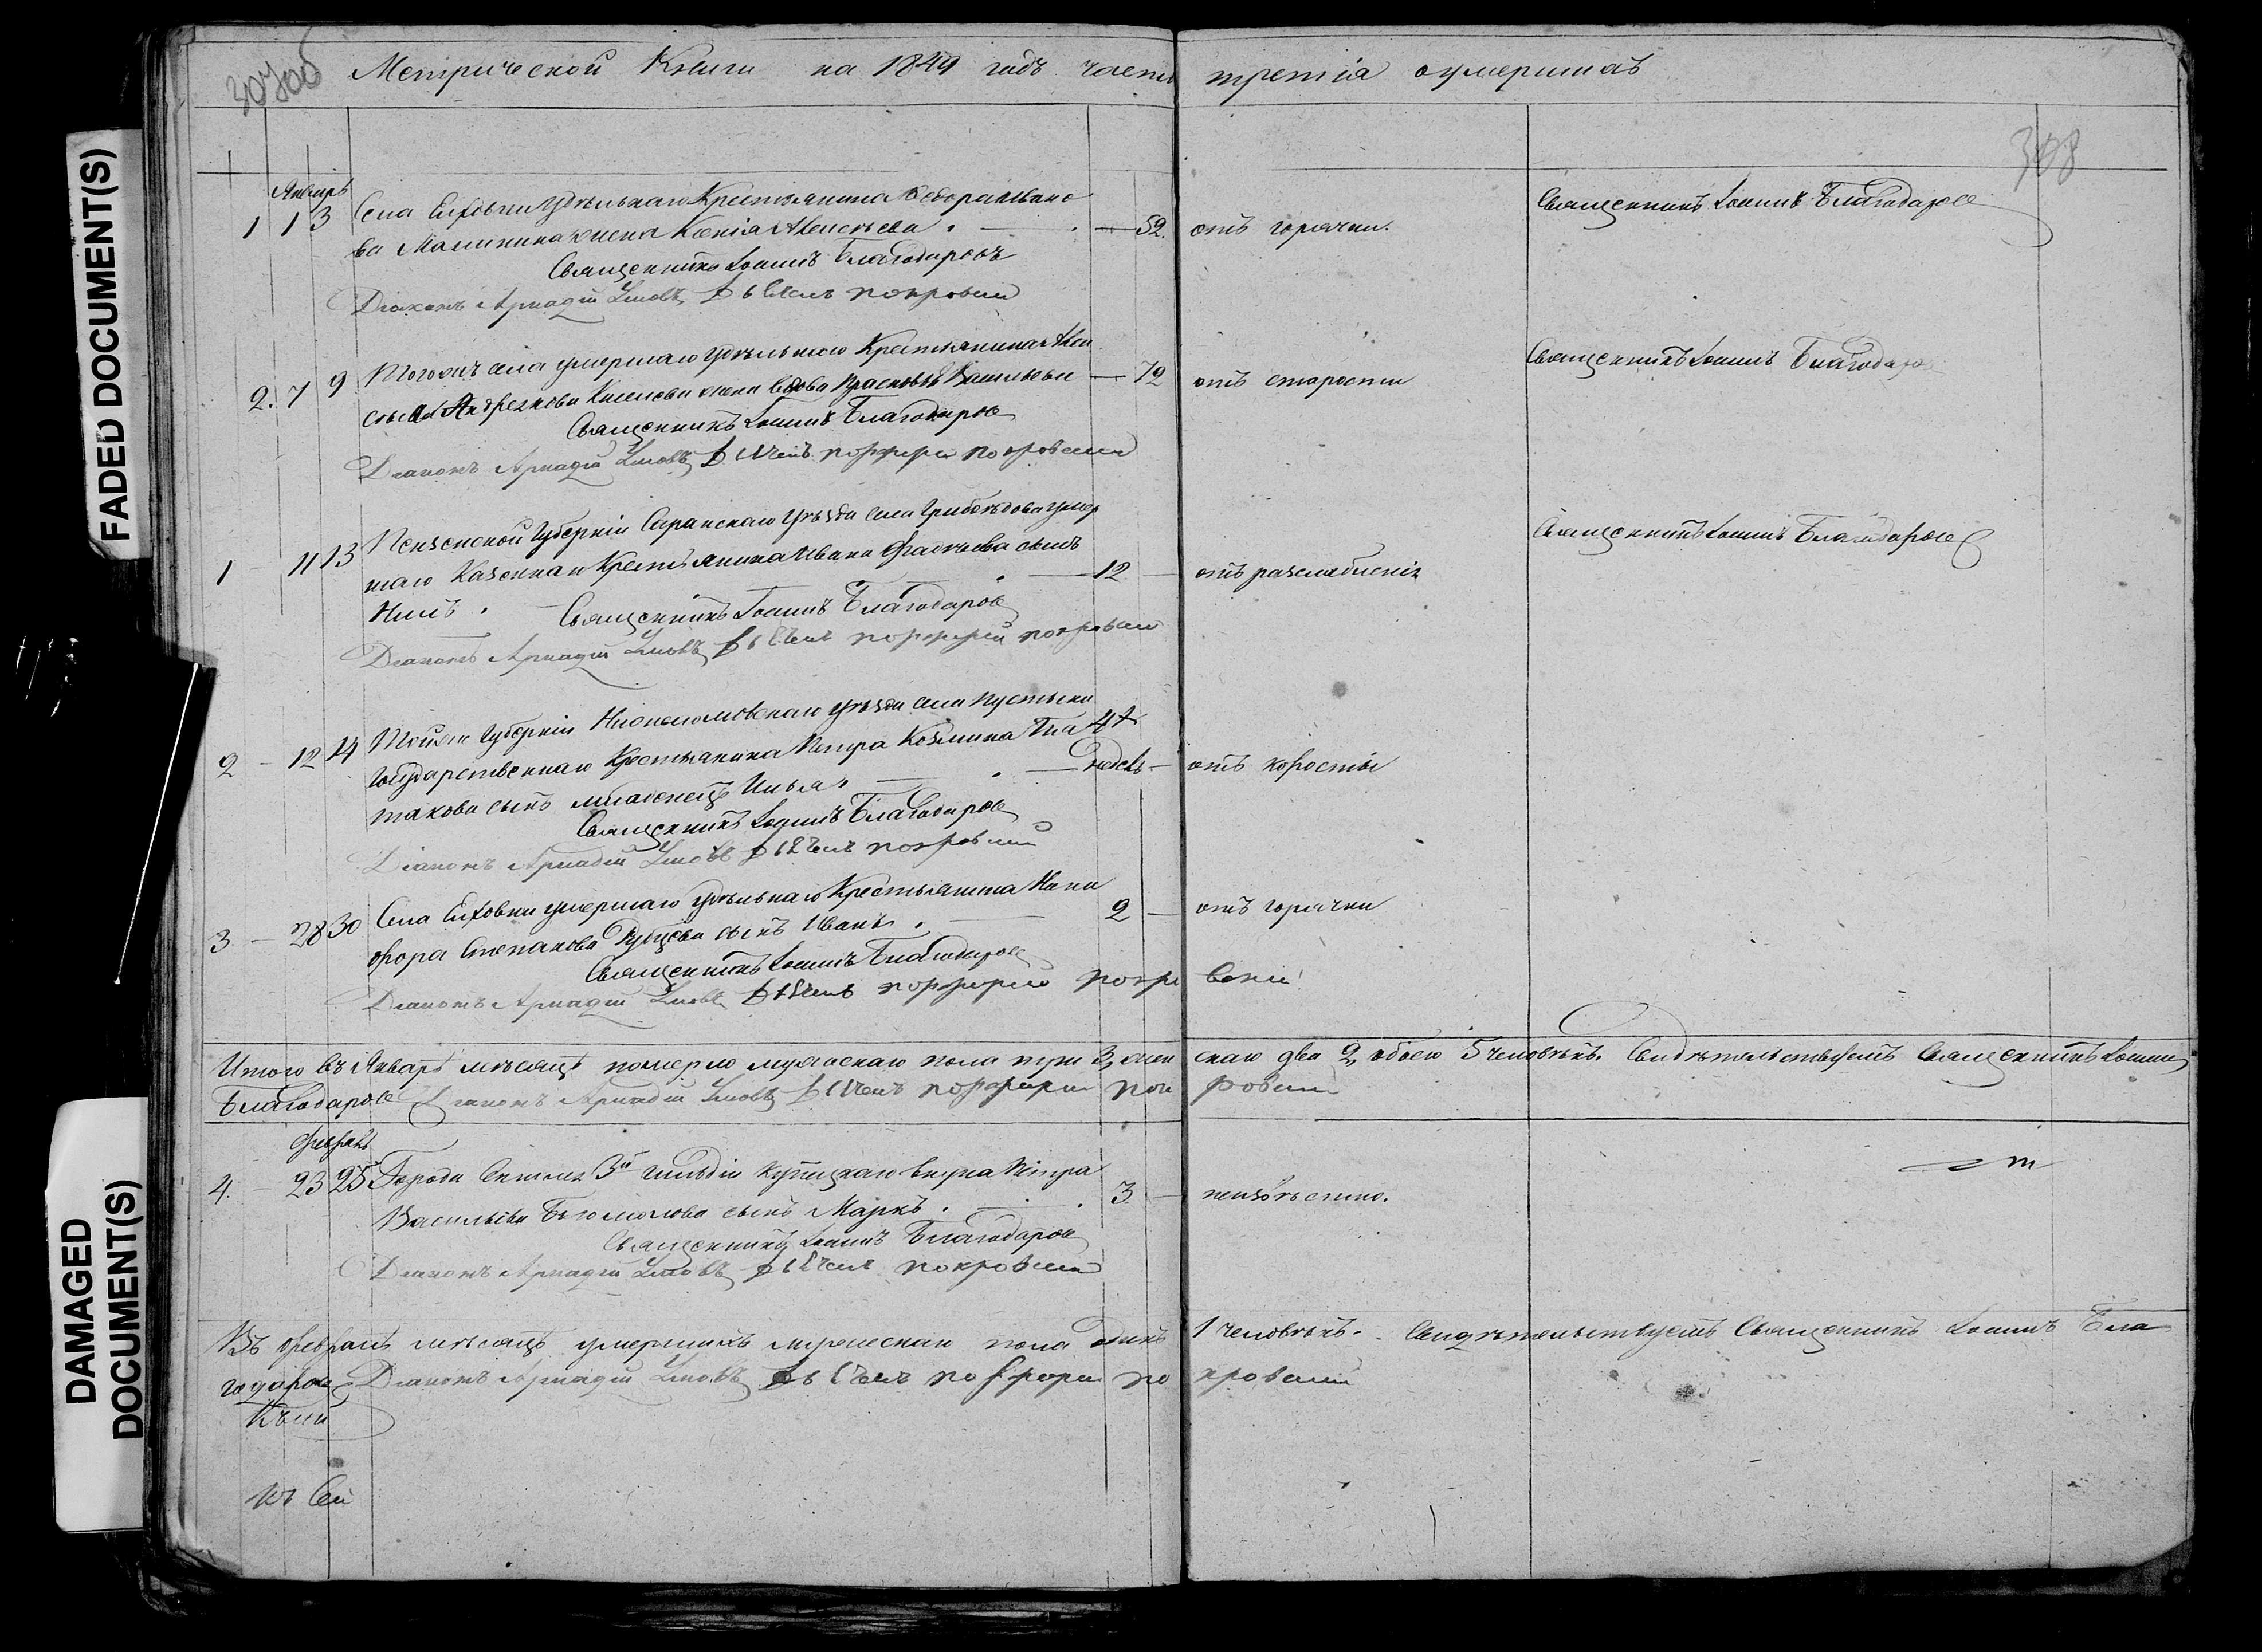 FADED DOCUMENT(S)
DAMAGED DOCUMENT(S)
Метрической Книги на 1849 годъ часть третія о умершихъ
308
Январь
1 1 3 Села Елховки Удѣльнаго Крестьянина Ѳедора Ивано
ва Малинина жена Ксенія Алексѣева. 52. отъ горячки. Священникъ Іоаннъ Благодаровъ
Священникъ Іоаннъ Благодаровъ
Діаконъ Аркадій Умовъ Покровскій
2. 7 9 Тогожъ села умершаго Удѣльнаго Крестьянина Алек
сѣя Андреянова жена вдова Прасковья Васильева 72 отъ старости Священникъ Іоаннъ Благодаровъ
Священникъ Іоаннъ Благодаровъ
Діаконъ Аркадій Умовъ Порфирій Покровскій
Пензенской Губерніи Саранскаго Уѣзда села Грибоѣдова умер
1 11 13 шаго Казеннаго Крестьянина Ивана сынъ 12 отъ разслабленія Священникъ Іоаннъ Благодаровъ
Нилъ. Священникъ Іоаннъ Благодаровъ
Діаконъ Аркадій Умовъ Порфирій Покровскій
2 12 14 Тойже Губерніи Нижнеломовскаго Уѣзда села Пустыни
Государственнаго Крестьянина Петра Козмина 4х
сынъ младенецъ Илья. недѣль отъ коросты
Священникъ Іоаннъ Благодаровъ
Діаконъ Аркадій Умовъ Покровскій
3 28 30 Села Елховки умершаго Удѣльнаго Крестьянина Ники
фора Степанова сынъ Иванъ. 2 отъ горячки
Священникъ Іоаннъ Благодаровъ
Діаконъ Аркадій Умовъ Порфирій Покровскій
Итого въ Январѣ мѣсяцѣ померло мужескаго пола три 3, женскаго два 2, обоего 5 человѣкъ. Свидѣтельствуетъ Священникъ Іоаннъ
Благодаровъ Діаконъ Аркадій Умовъ Порфирій Покровскій
Февраль
4. 23 25 Города 3й гильдіи купецкаго внука Петра
Васильева сынъ Маркъ. 3 неизвѣстно.
Священникъ Іоаннъ Благодаровъ
Діаконъ Аркадій Умовъ Покровскій
Въ Февралѣ мѣсяцѣ умершихъ мужескаго пола одинъ 1 человѣкъ. Свидѣтельствуетъ Священникъ Іоаннъ Бла
годаровъ Діаконъ Аркадій Умовъ Порфирій Покровскій
Къ сей